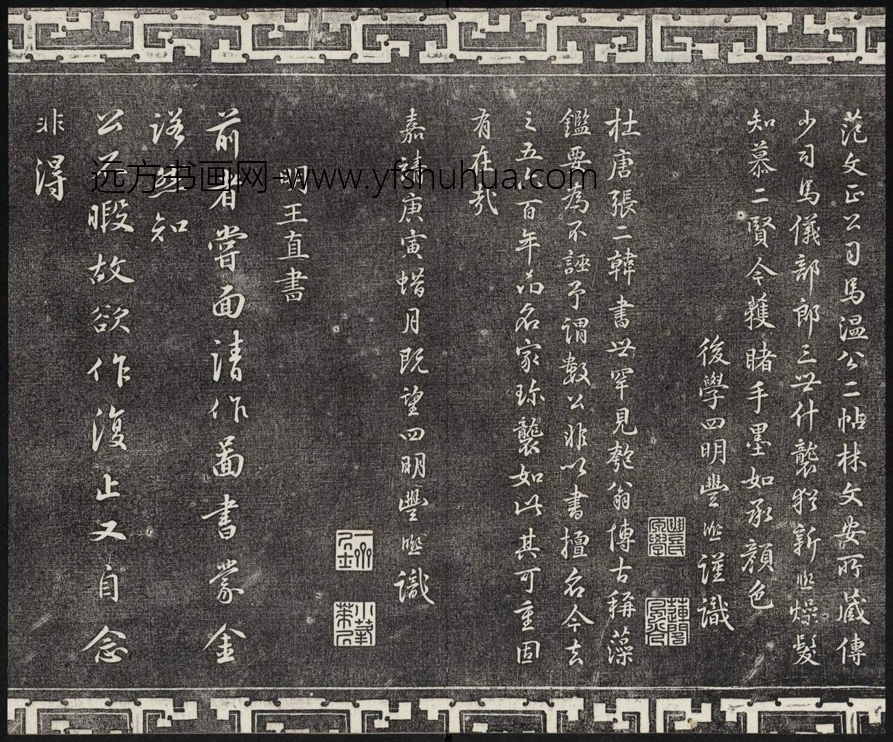 范文正公司馬温公二帖林文安所藏傳
少司馬儀部郎三世什襲猶新熙燥髮
知慕二賢今獲睹手墨如承顔色
後學四明豐熙謹識
杜唐張二韓書世罕見匏翁傳古稱藻
鑑要為不誣予謂數公非以書擅名今去
之五七百年而名家珎襲如此其可重固
有在哉
嘉靖庚寅蜡月既望四明豐熙識
明王直書
前者嘗面請作圖書蒙金
諾然知
公不暇故欲作復止又自念
非得
远方书画网-www.yfshuhua.com